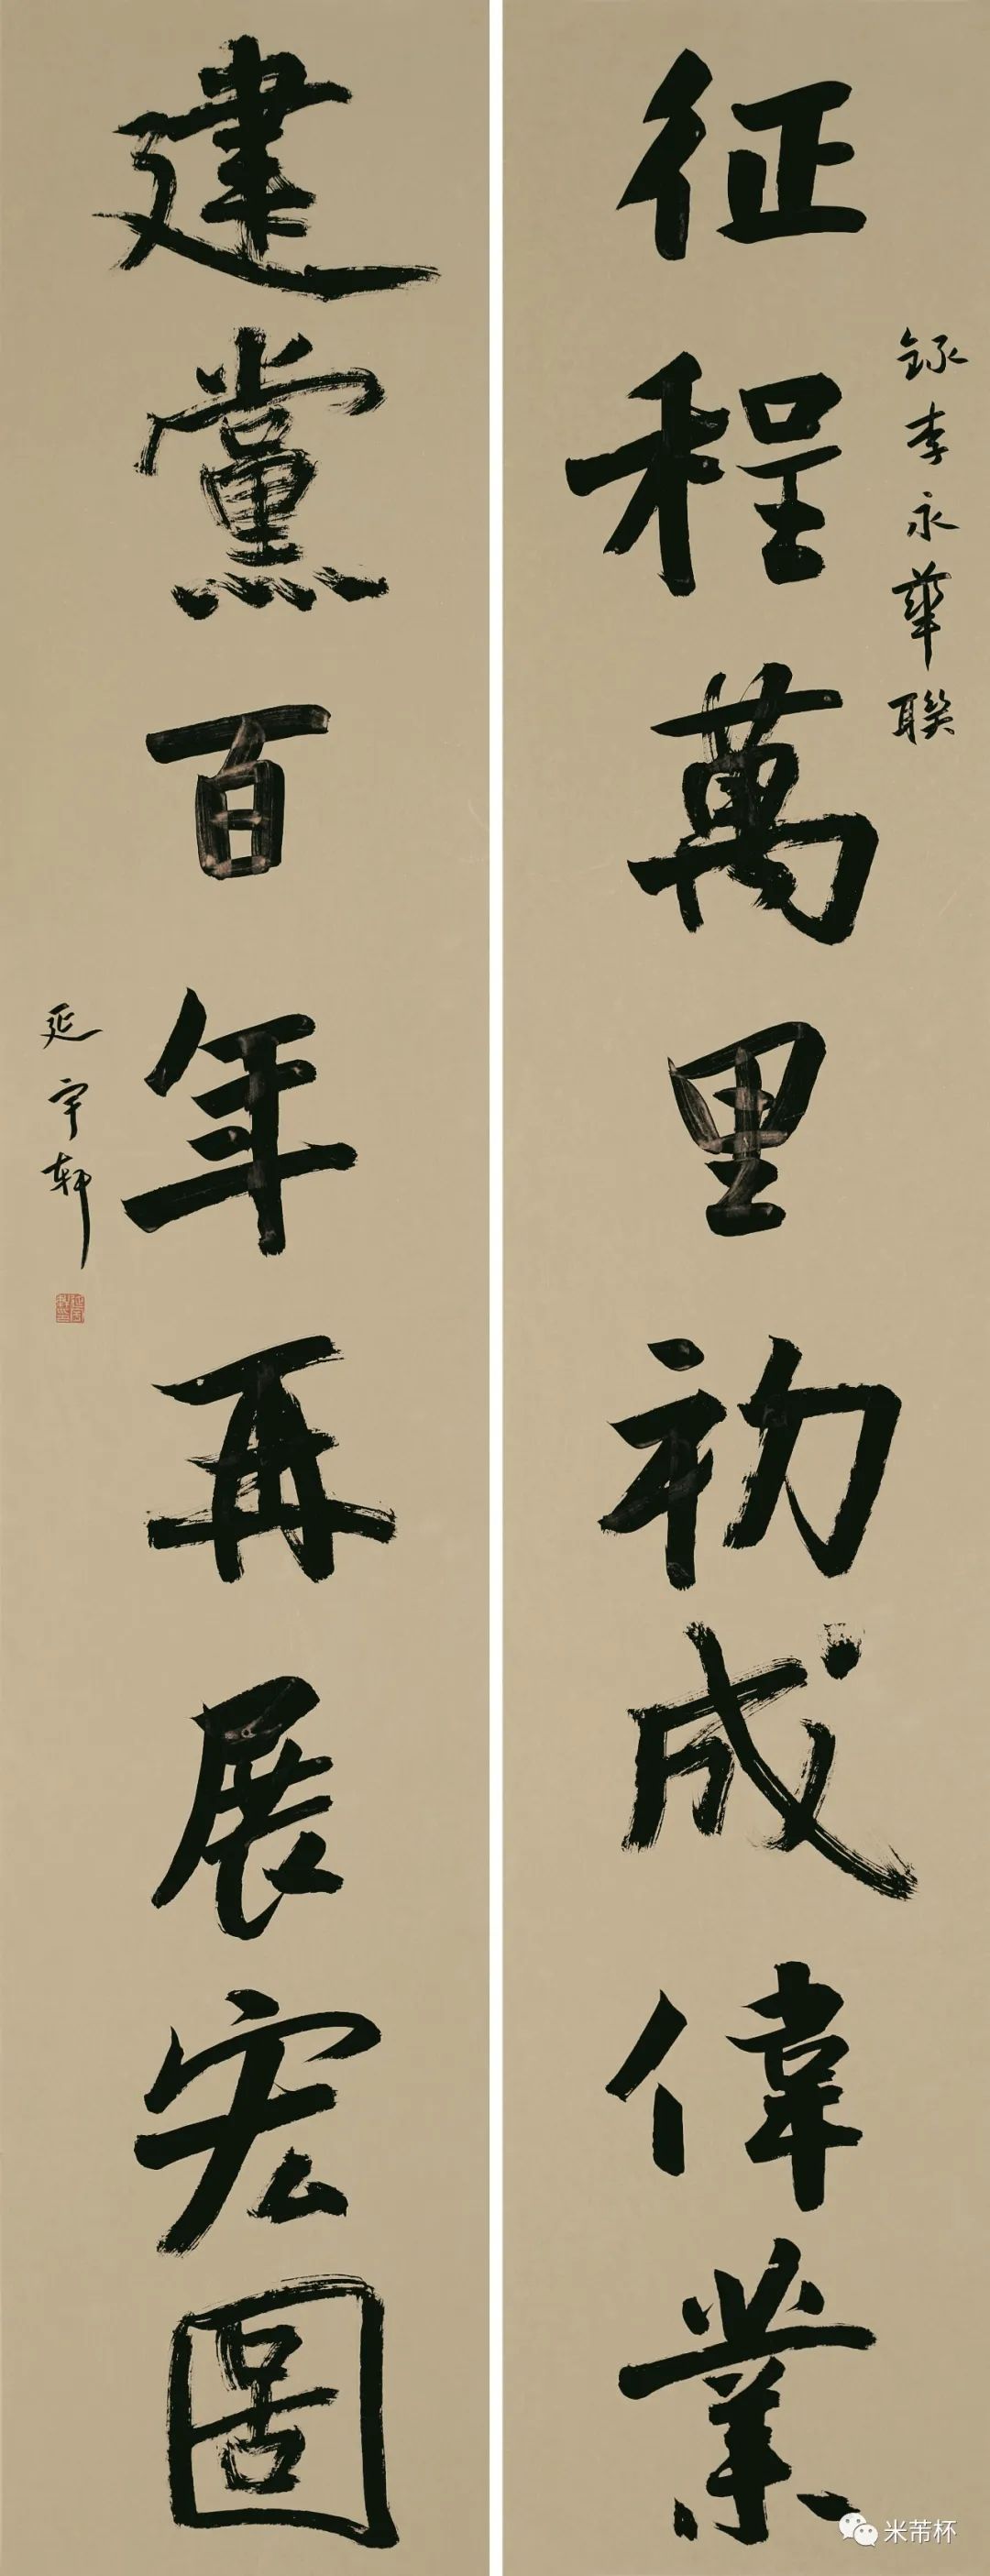 錄李永華聯
征程萬里初成偉業
建黨百年再展宏圖
延宇軒
米芾杯